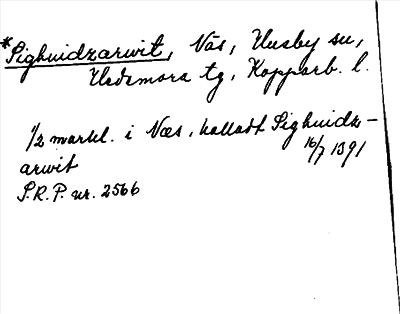 *Sighuidzarwit, Näs, Husby sn,
Hedemora tg, Kopparb. l.
1/2 markl. i Næs, kalladt Sighuidz-
arwit 16/7 1391
S.R.P. nr. 2566